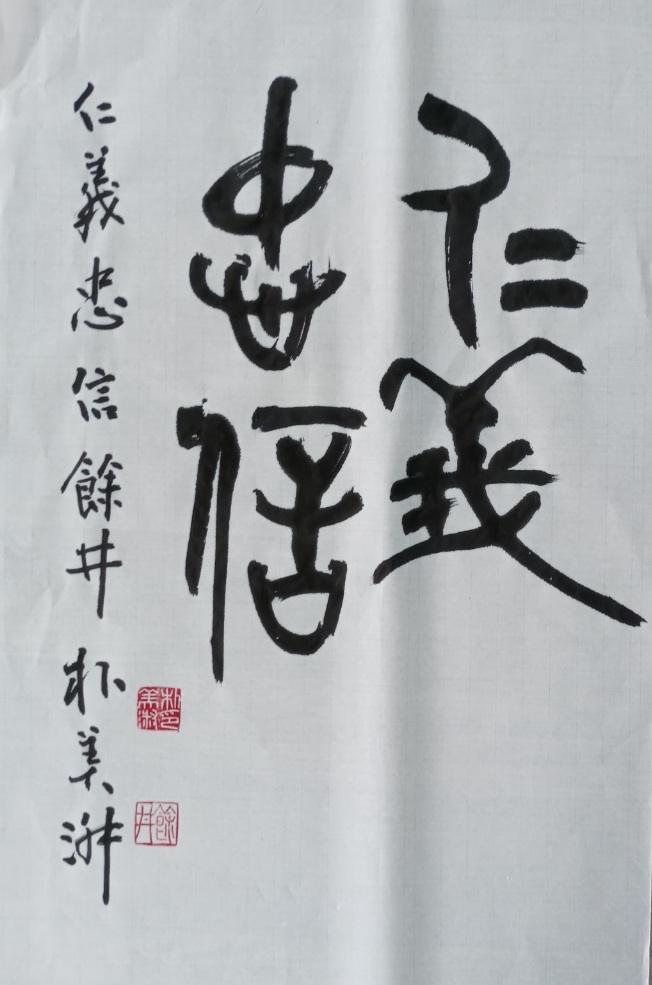 仁義
忠信
仁義忠信餘井朴美湖
朴美湖印
餘井